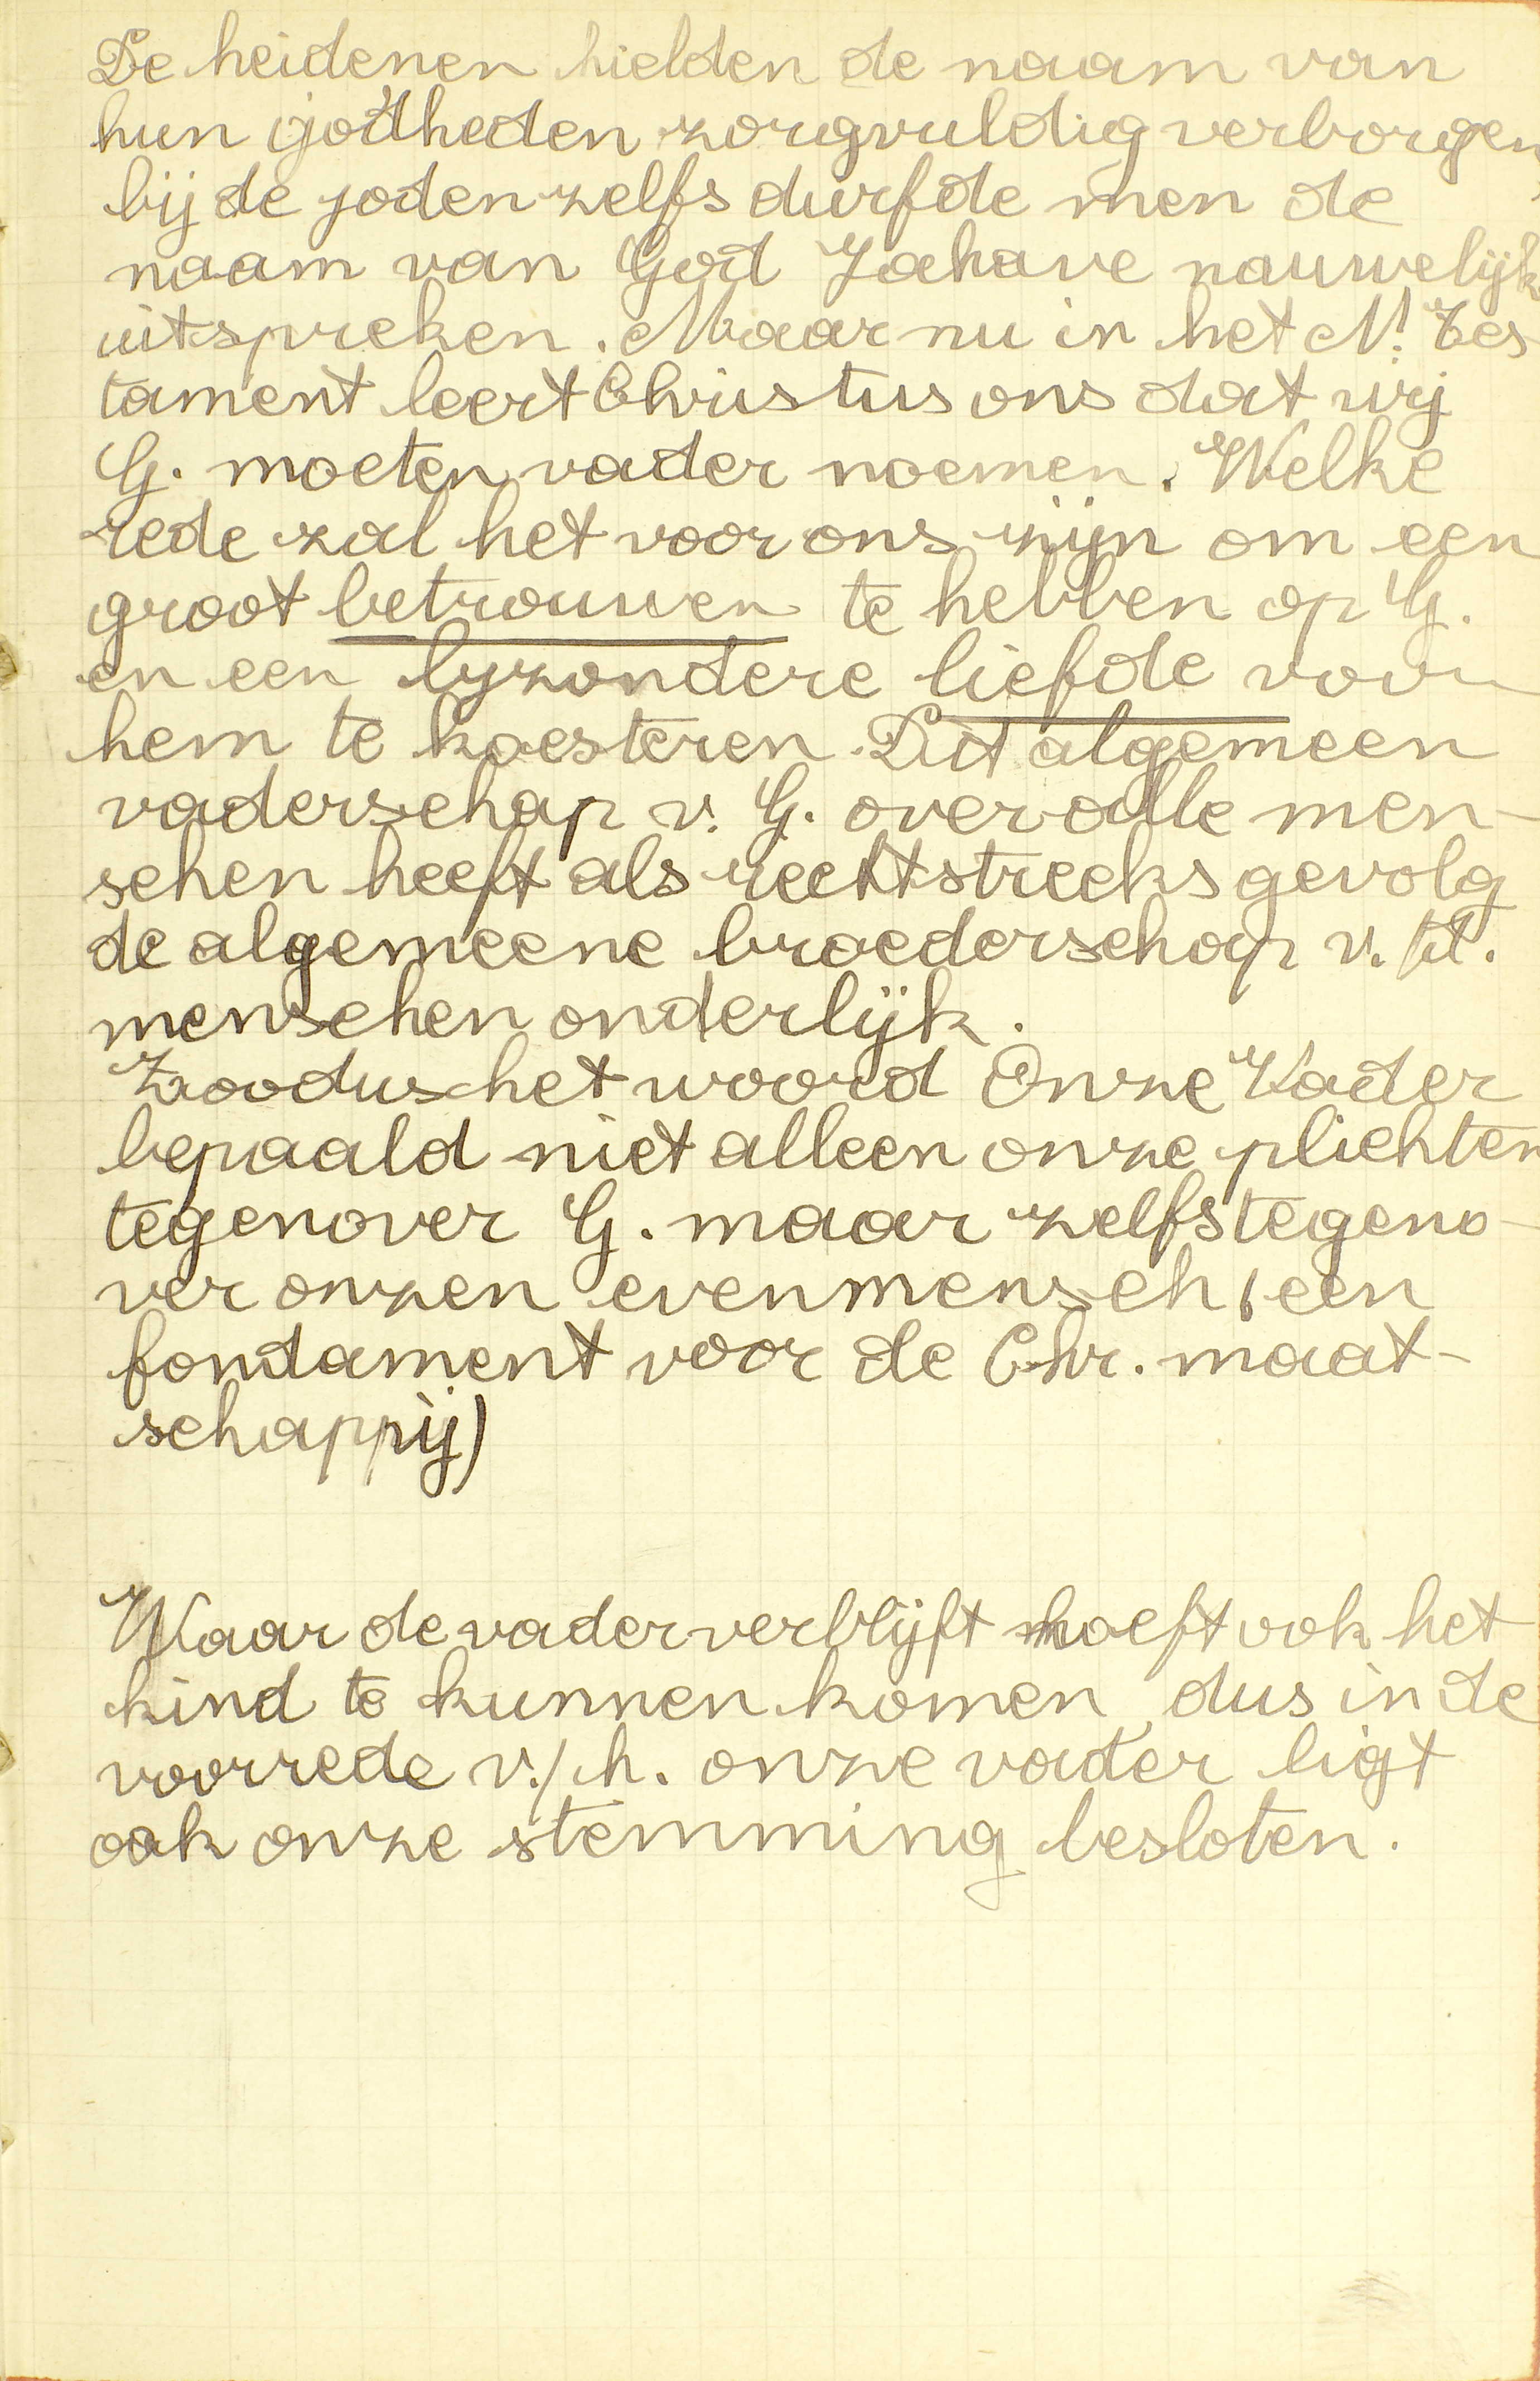 De heidenen hielden de naam van
hun godheden zorgvuldig verborgen
bij de joden zelfs durfde men de
naam van God Jahave nauwelijk
uitspreken. Maar nu in het N. Tes-
tament leert Christus ons dat wij
G. moeten vader noemen. Welke
rede zal het voor ons zijn om een
groot betrouwen te hebben op G.
en een byzondere liefde voor
hem te koesteren. Dit algemeen
vaderschap v. G. over alle men-
schen heeft als rechtstreeks gevolg
de algemeene broederschap v.
menschen onderlijk.
Zoodus het woord Onze Vader
bepaald niet alleen onze plichten
tegenover G. maar zelfs tegeno-
ver onzen evenmensch, een
fondament voor de Chr. maat-
schappij)
Waar de vader verblijft hoeft ook het
kind te kunnen komen, dus in de
voorrede v./h. onze vader ligt
ook onze stemming besloten.